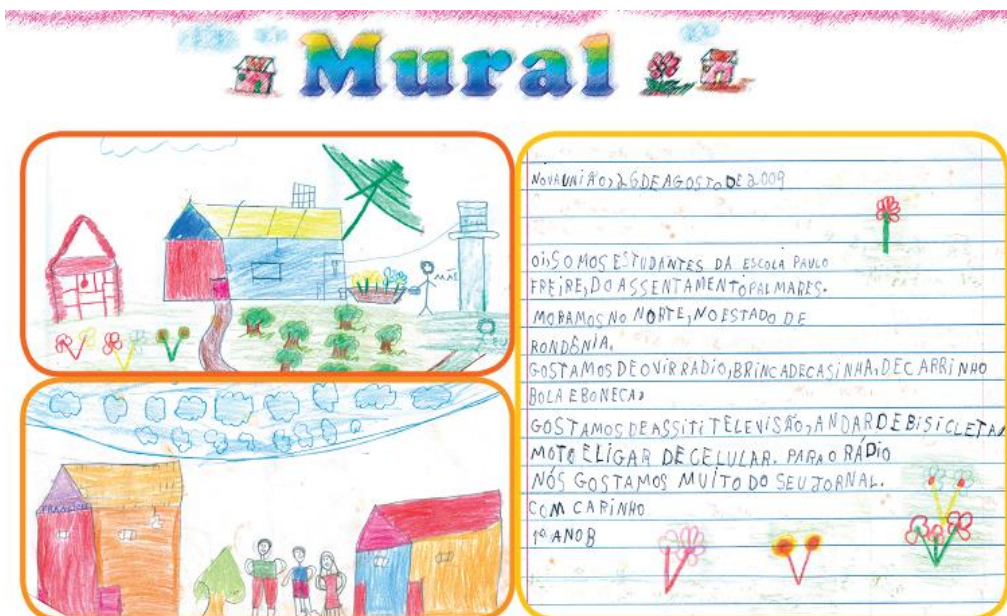 Mural
MÃE
EU
NOVA UNIÃO, 26 DE AGOSTO DE 2009
OI, SOMOS ESTUDANTES DA ESCOLA PAULO
FREIRE, DO ASSENTAMENTO PALMARES.
MORAMOS NO NORTE, NO ESTADO DE
RONDÔNIA.
GOSTAMOS DE OVIR RÁDIO, BRINCA DE CASINHA, DE CARRINHO
BOLA E BONECA,
GOSTAMOS DE ASSITI TELEVISÃO, ANDAR DE BISICLETA,
MOTO E LIGAR DE CELULAR. PARA O RÁDIO
NÓS GOSTAMOS MUITO DO SEU JORNAL.
COM CARINHO
1º ANO B